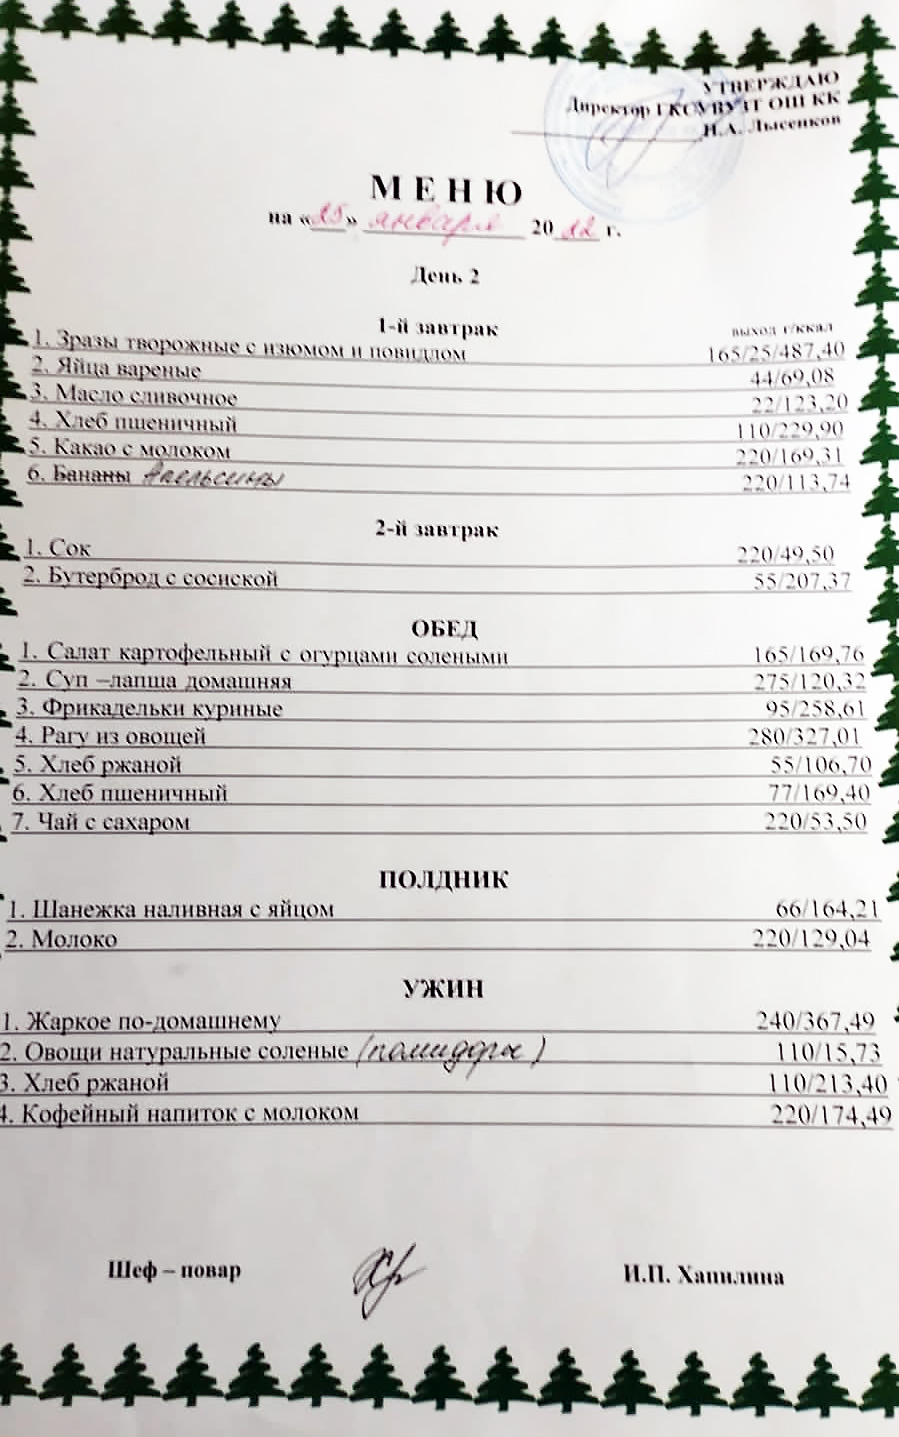 УТВЕРЖДАЮ
Директор ГКСУВУЗТ ОШ КК
Н.А. Лысенков
МЕНЮ
на «25» января 2022 г.
День 2
1-й завтрак
выход г/ккал
1. Зразы творожные с изюмом и повидлом 165/25/487,40
2. Яйца вареные 44/69,08
3. Масло сливочное 22/123,20
4. Хлеб пшеничный 110/229,90
5. Какао с молоком 220/169,31
6. Бананы Апельсины 220/113,74
2-й завтрак
1. Сок 220/49,50
2. Бутерброд с сосиской 55/207,37
ОБЕД
1. Салат картофельный с огурцами солеными 165/169,76
2. Суп –лапша домашняя 275/120,32
3. Фрикадельки куриные 95/258,61
4. Рагу из овощей 280/327,01
5. Хлеб ржаной 55/106,70
6. Хлеб пшеничный 77/169,40
7. Чай с сахаром 220/53,50
ПОЛДНИК
1. Шанежка наливная с яйцом 66/164,21
2. Молоко 220/129,04
УЖИН
1. Жаркое по-домашнему 240/367,49
2. Овощи натуральные соленые (помидоры) 110/15,73
3. Хлеб ржаной 110/213,40
4. Кофейный напиток с молоком 220/174,49
Шеф – повар И.П. Хапилина